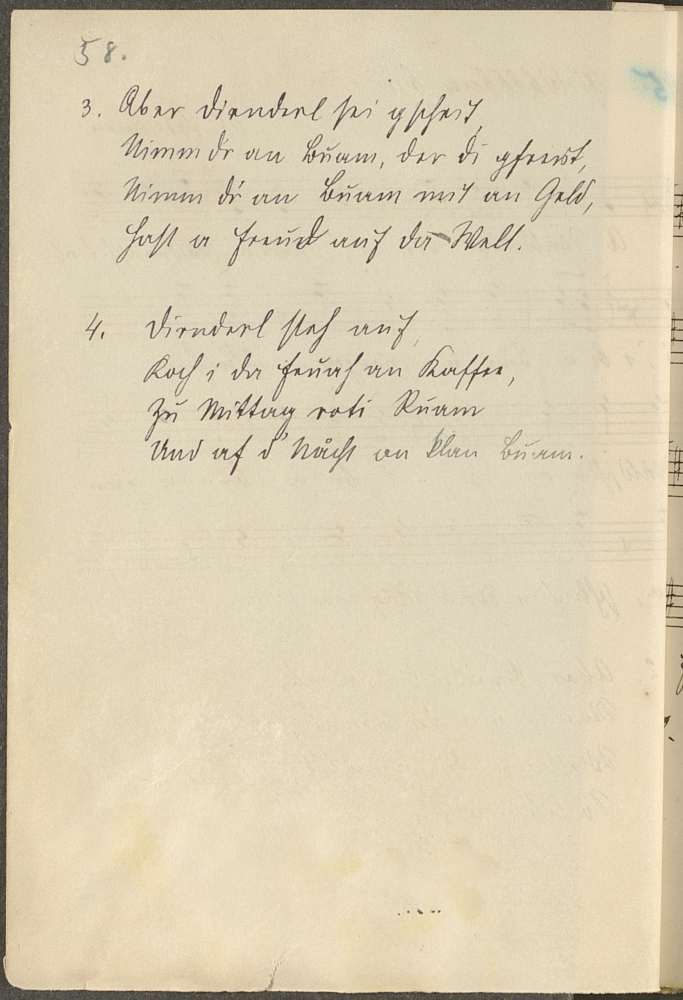 58.
3. Aber Dirnderl sei gscheit,
Nimm dr an Buam, der di gfreut,
Nimm dr an Buam mit an Geld,
Hast a Freud auf da Welt.
4. Dirnderl steh auf,
Koch i da Feuah an Kaffee,
Zu Mittag roti Ruam
Und af d' Nåcht an klan Buam.